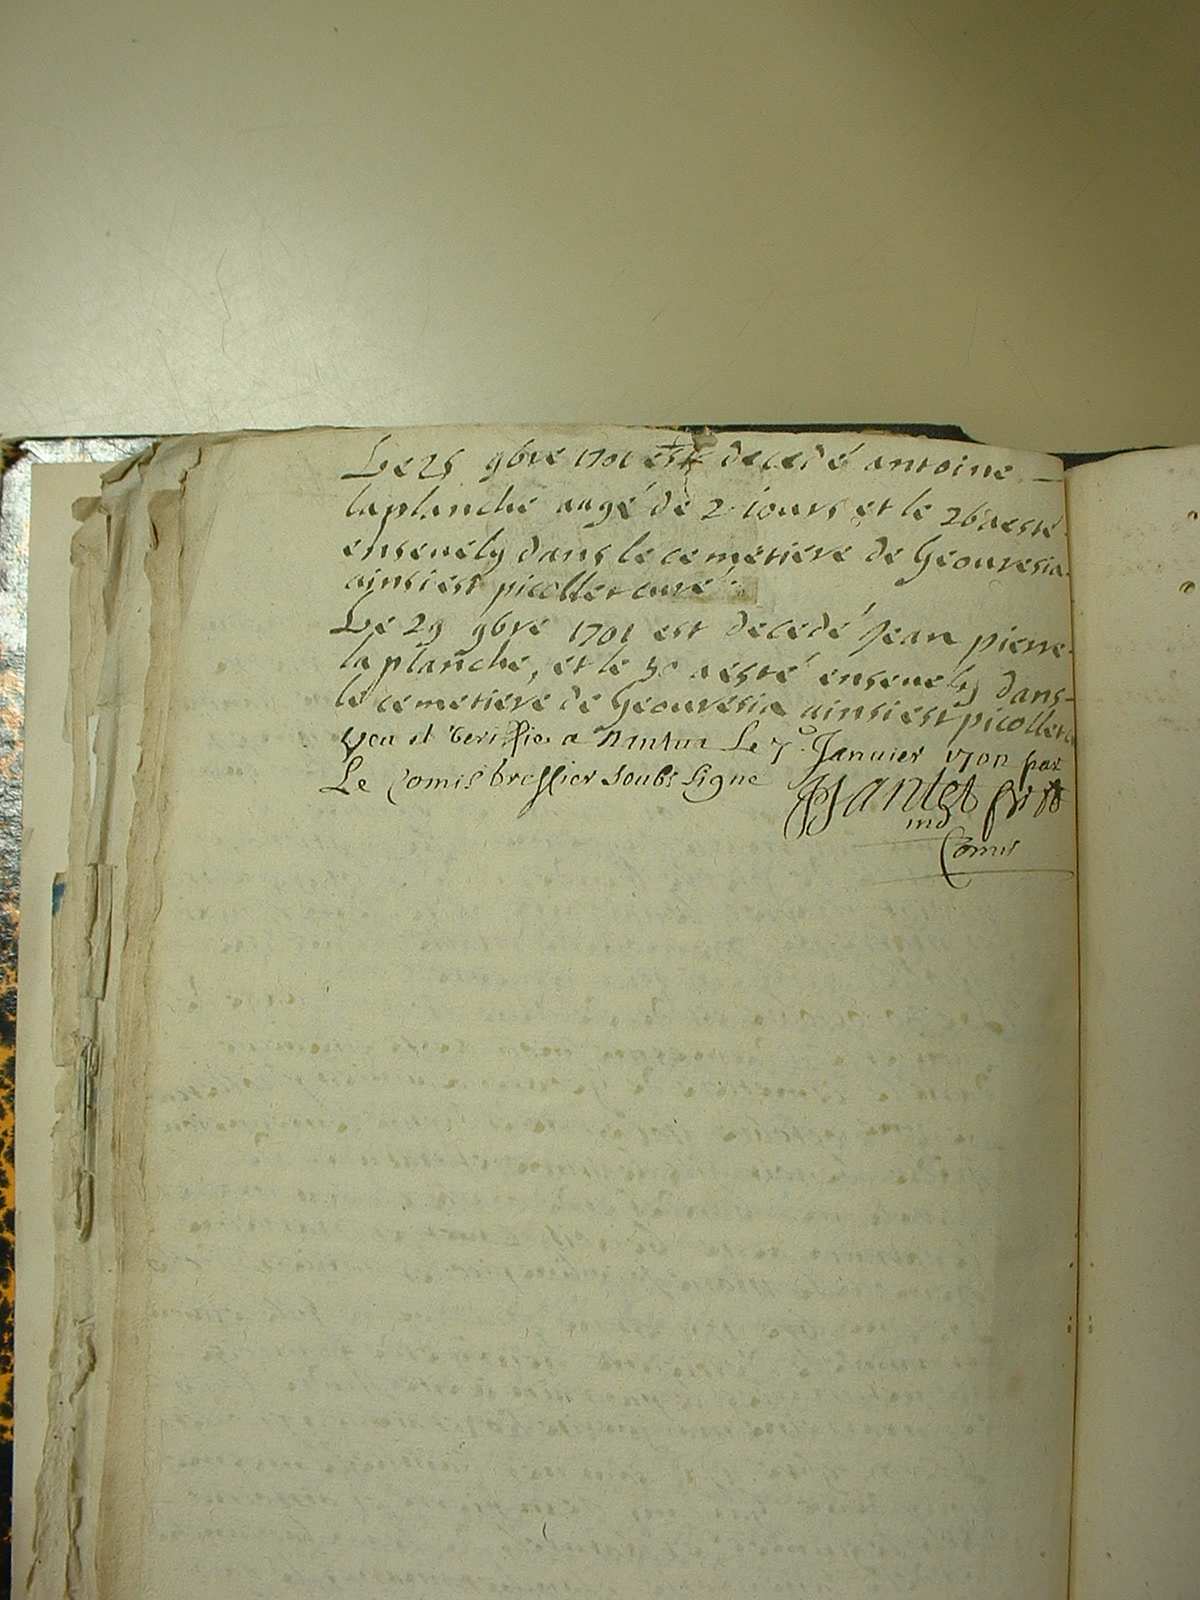 Le 25 9bre 1701 est decedé antoine
laplanche aagé de 2 iours et le 26 a esté
enseuely dans le cemetiere de Geouresia
ainsi est picollet curé
Le 29 9bre 1701 est decedé Jean pierre
la planche, et le 30 a esté enseuely dans
le cemetiere de Geouresia ainsi est picollet
Veu et verifie a nantua Le 7e Januier 1702 par
Le Comis bressier soubs signe Jantet
Comis